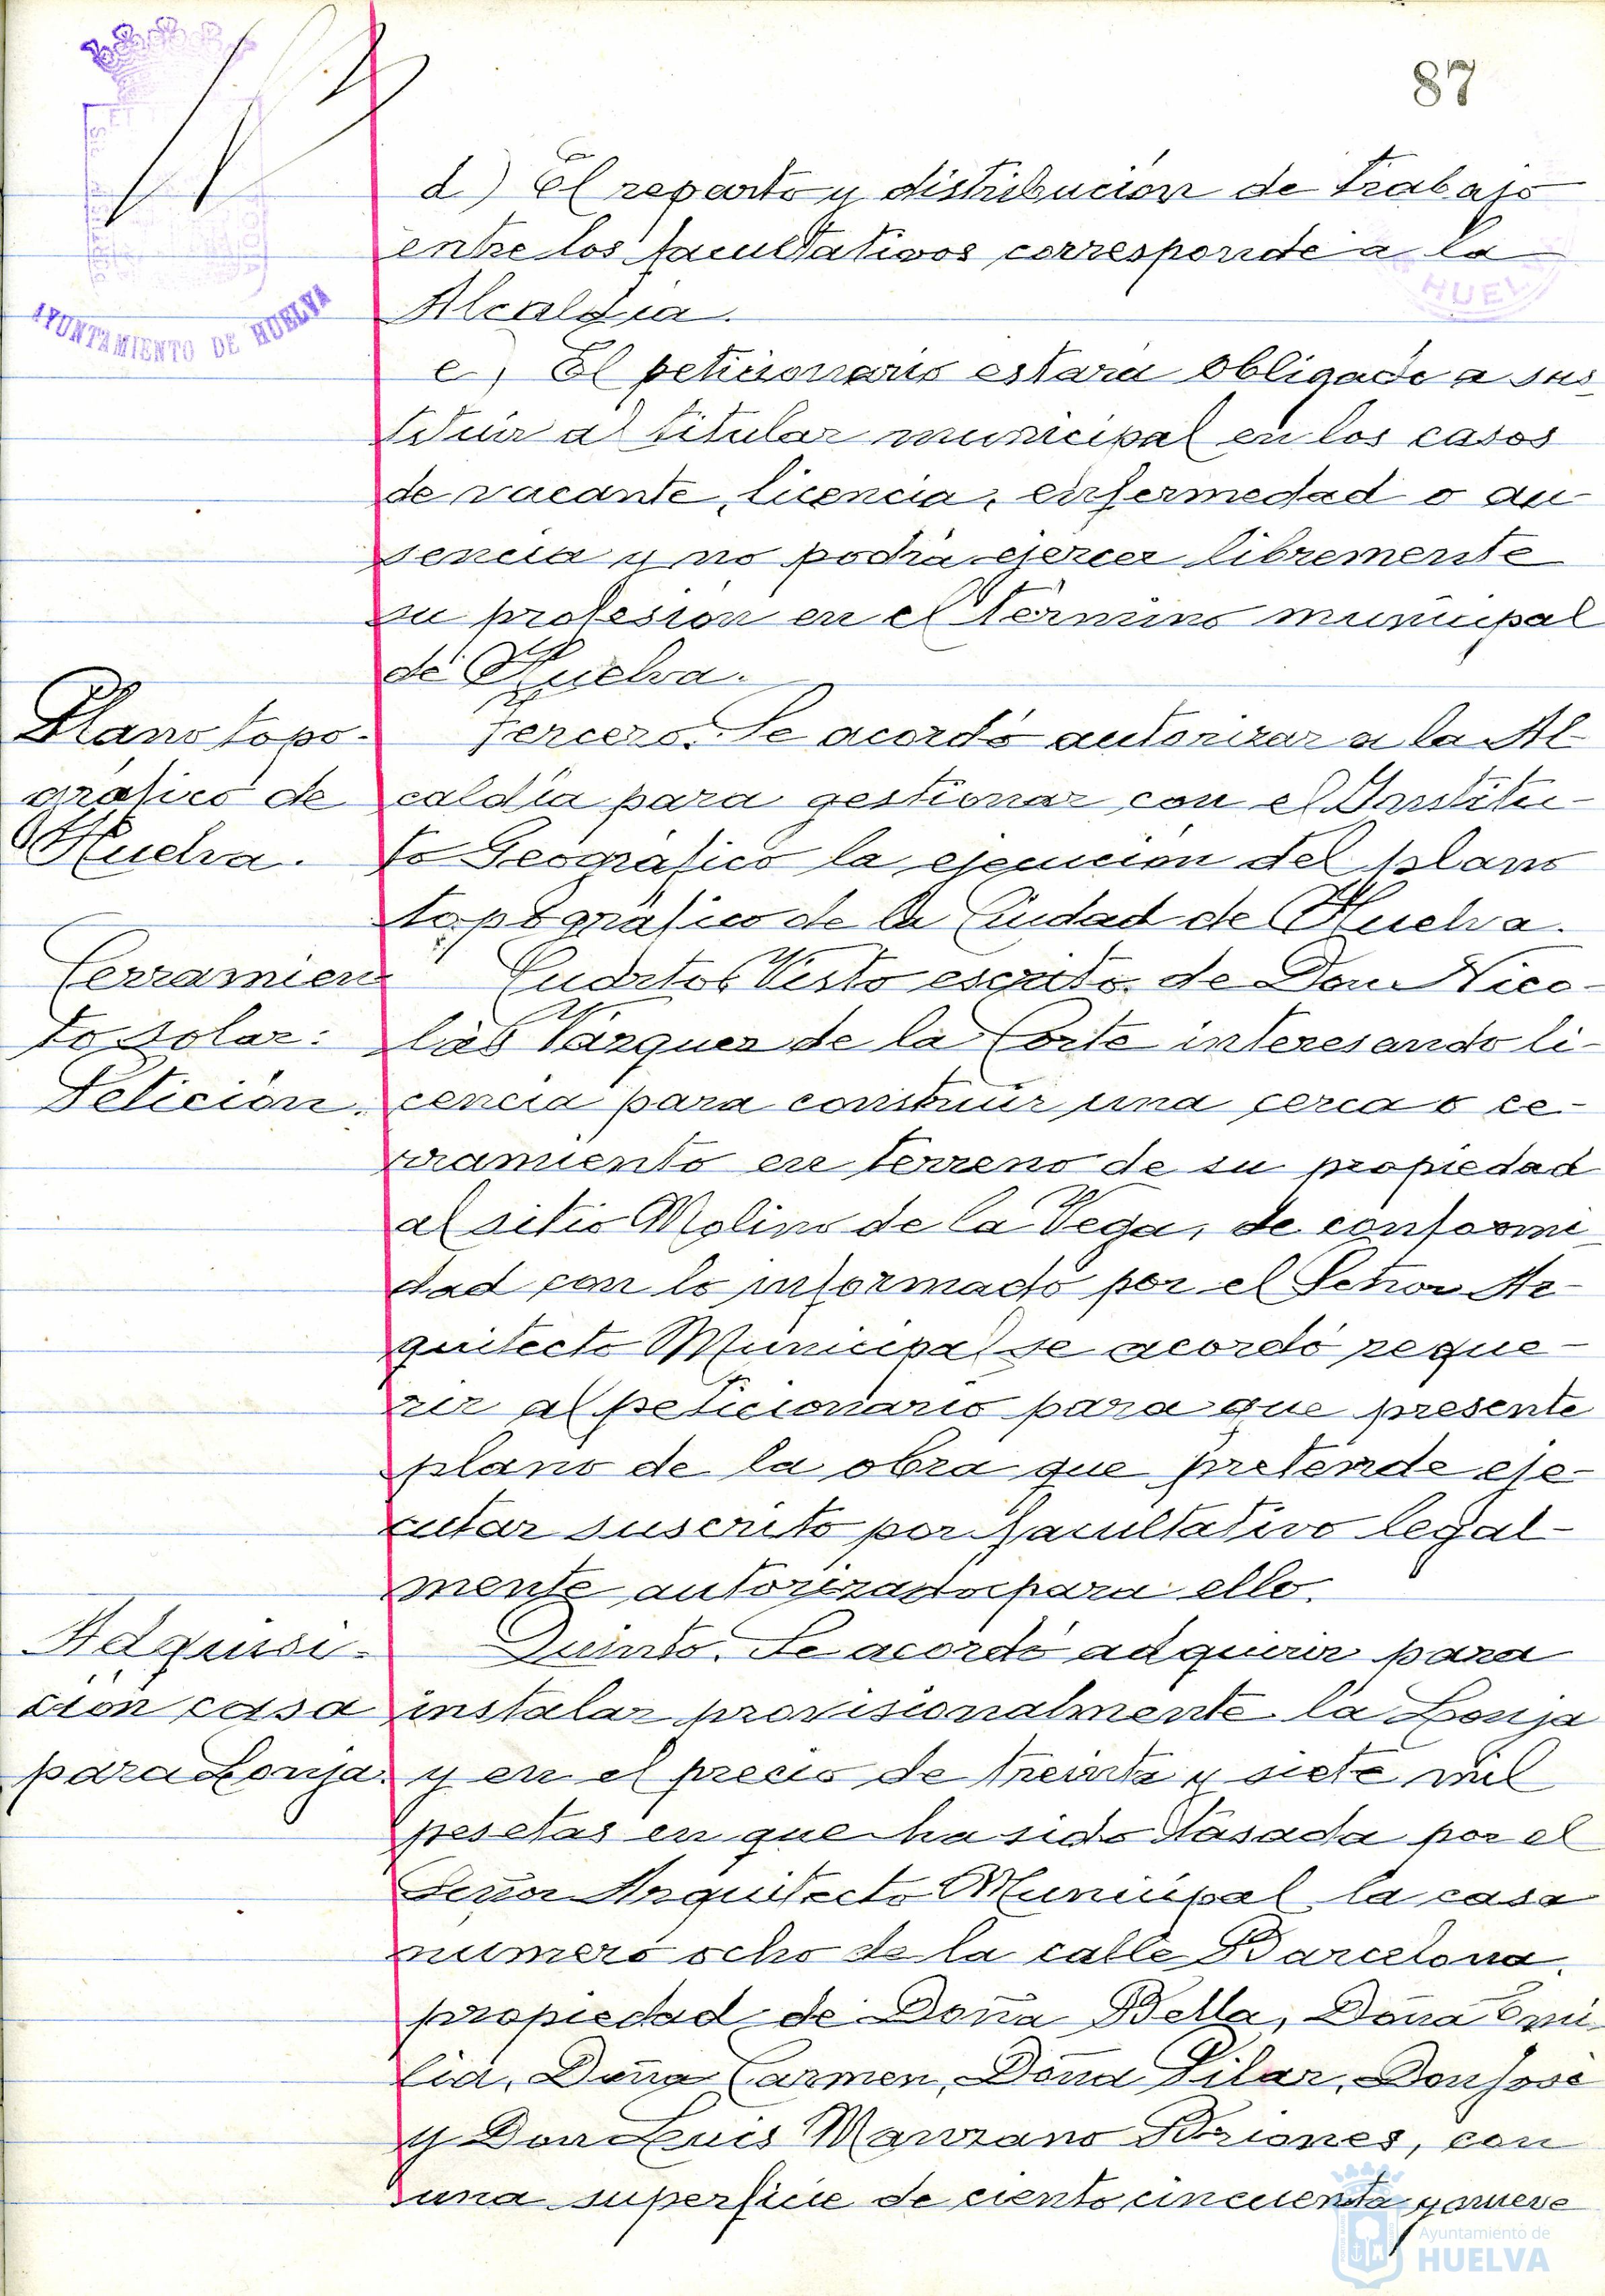 87
AYUNTAMIENTO DE HUELVA
HUELVA
d) El reparto y distribución de trabajo
entre los facultativos corresponde a la
Alcaldía.
e) El peticionario estará obligado a sus-
tituir al titular municipal en los casos
de vacante, licencia, enfermedad o au-
sencia y no podrá ejercer libremente
su profesión en el término municipal
de Huelva.
Plano topo-
gráfico de
Huelva.
Tercero. Se acordó autorizar a la Al-
caldía para gestionar con el Institu-
to Geográfico la ejecución del plano
topográfico de la Ciudad de Huelva.
Cerramien
to solar:
Petición.
Cuarto. Visto escrito de Don Nico-
lás Vázquez de la Corte interesando li-
cencia para construir una cerca o ce-
rramiento en terreno de su propiedad
al sitio Molino de la Vega, de conformi
dad con lo informado por el Señor Ar-
quitecto Municipal se acordó reque-
rir al peticionario para que presente
plano de la obra que pretende eje-
cutar suscrito por facultativo legal-
mente autorizado para ello.
Adquisi-
ción casa
para Lonja.
Quinto. Se acordó adquirir para
instalar provisionalmente la Lonja
y en el precio de treinta y siete mil
pesetas en que ha sido tasada por el
Señor Arquitecto Municipal la casa
número ocho de la calle Barcelona,
propiedad de Doña Bella, Doña Emi-
lia, Doña Carmen, Doña Pilar, Don José
y Don Luis Manzano Briones, con
una superficie de ciento cincuenta y nueve
Ayuntamiento de
HUELVA